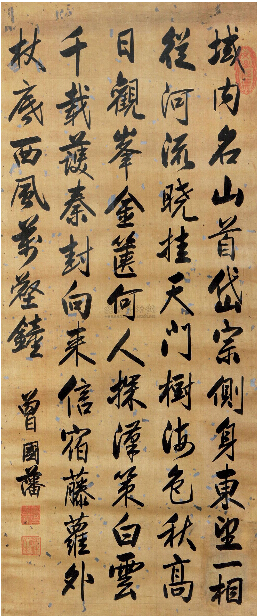 域内名山首岱宗側身東望一相
從河流曉挂天門樹海色秋高
日觀峯金篋何人探漢策白雲
千載護秦封向来信宿藤蘿外
杖底西風萬壑鐘
曾國藩